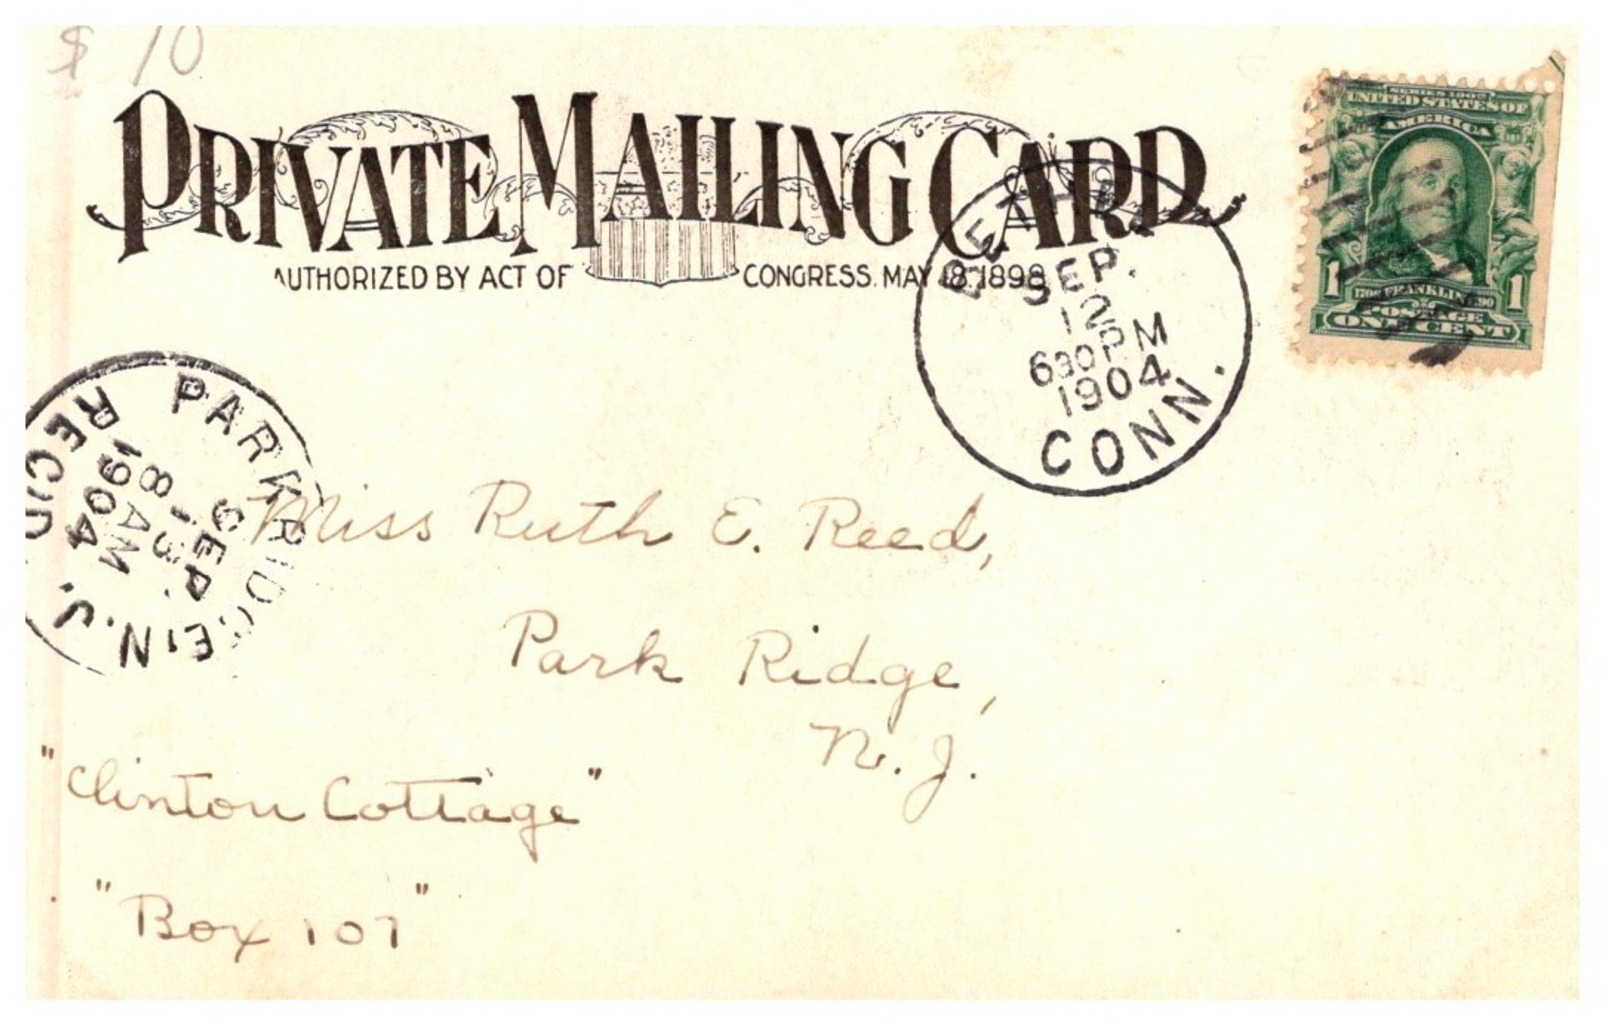 $ 10
PRIVATE MAILING CARD
AUTHORIZED BY ACT OF CONGRESS. MAY 18, 1898
SERIES 1902
UNITED STATES OF
AMERICA
1706 FRANKLIN 1790
POSTAGE
1 ONE CENT 1
BETHEL
SEP.
12
630PM
1904
CONN.
PARK RIDGE, N.J.
SEP.
13
8 AM
1904
REC'D.
Miss Ruth E. Reed,
Park Ridge,
N. J.
"Clinton Cottage"
"Box 107"